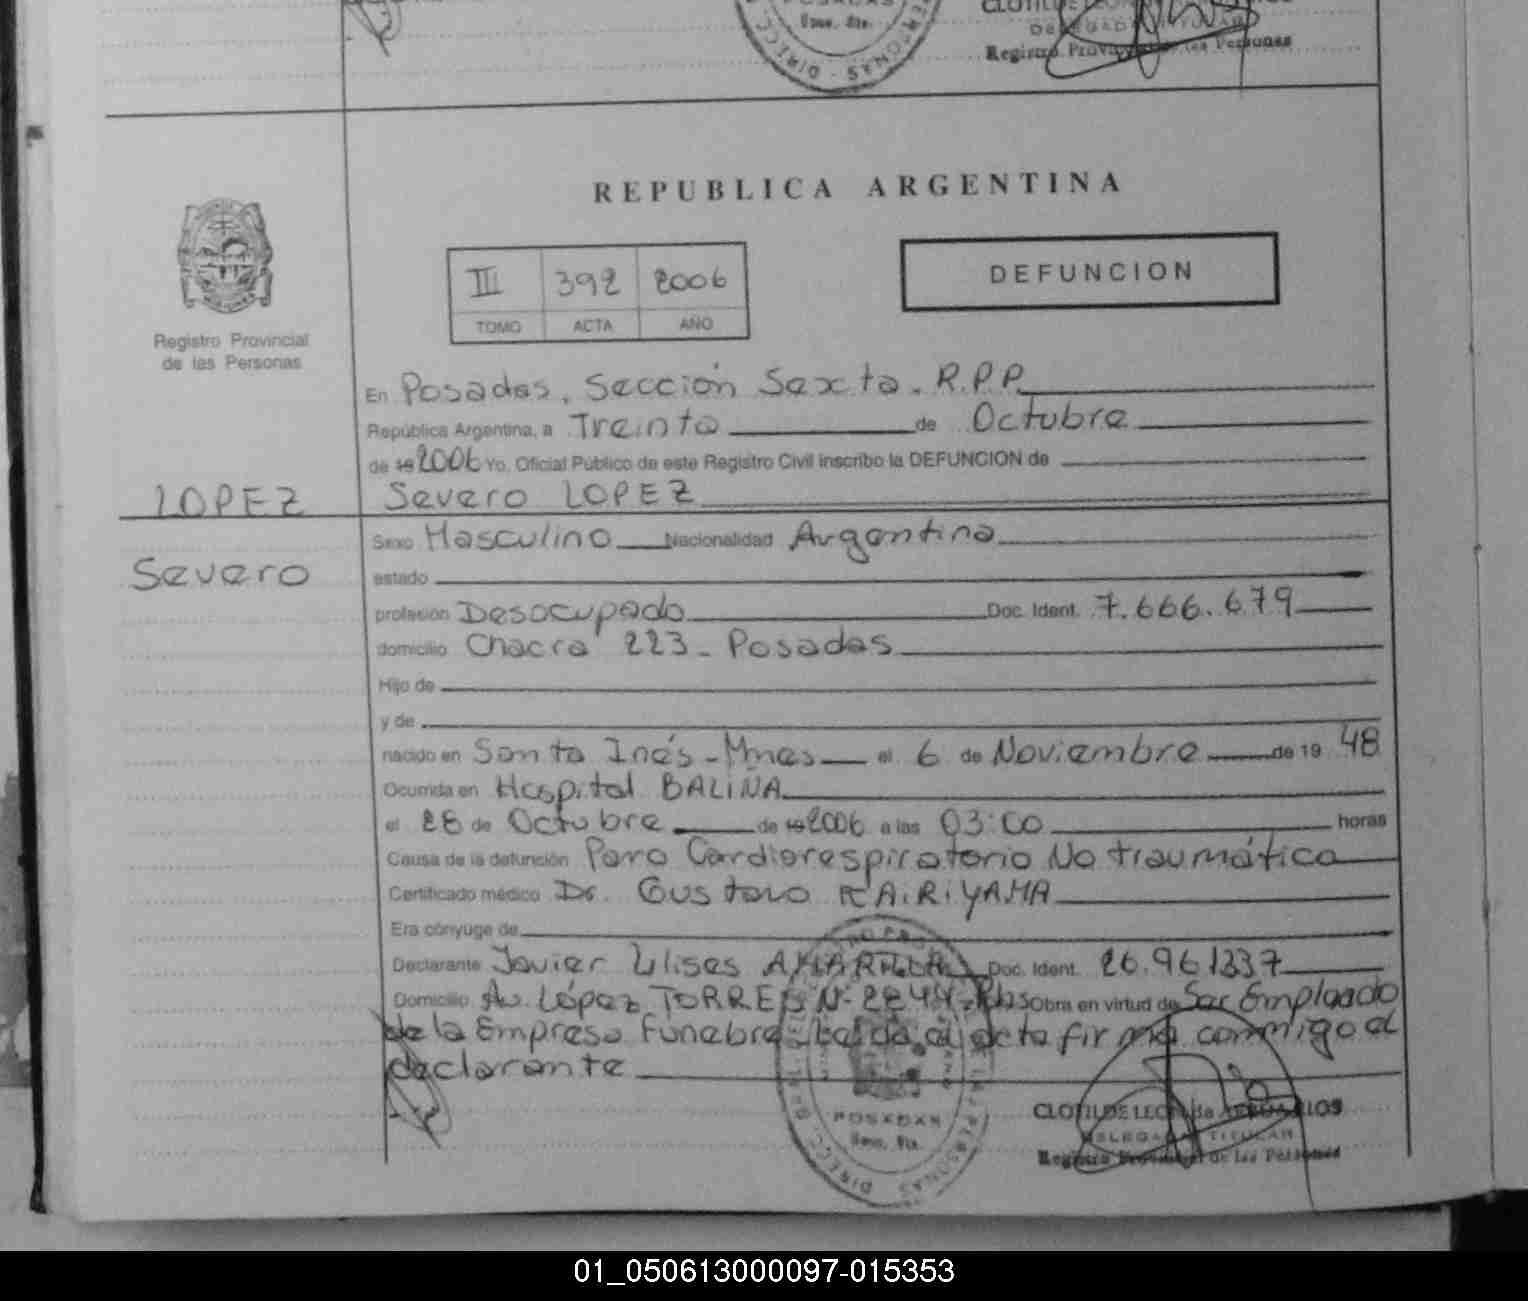 POSADAS
DIRECC
PERSONAS
DELEGADA TITULAR
Registro Provincial de las Personas
REPUBLICA ARGENTINA
III 392 2006
TOMO ACTA AÑO
DEFUNCION
Registro Provincial
de las Personas
En Posadas, Sección Sexta. R.P.P.
República Argentina, a Treinta de Octubre
de 19 2006 Yo, Oficial Público de este Registro Civil inscribo la DEFUNCION de
LOPEZ Severo LOPEZ
Sexo Masculino Nacionalidad Argentina
Severo
estado
profesión Desocupado Doc. Ident. 7.666.679
domicilio Chacra 223 - Posadas
Hijo de
y de
nacido en Santa Inés - Mnes el 6 de Noviembre de 19 48
Ocurrida en Hospital BALIÑA
el 28 de Octubre de 19 2006 a las 03:00 horas
Causa de la defunción Paro Cardiorespiratorio No traumática
Certificado médico Dr. Gustavo KAIRIYAMA
Era cónyuge de
Declarante Javier Ulises AMARILLA Doc. Ident. 26.961337
Domicilio Av. López TORRES Nº 2244 - Pdas Obra en virtud de Ser Empleado
de la Empresa Funebre Leída el acta firma conmigo el
declarante
POSADAS
CLOTILDE LEON
DELEGADA TITULAR
Registro Provincial de las Personas
DIRECC
PERSONAS
01_050613000097-015353